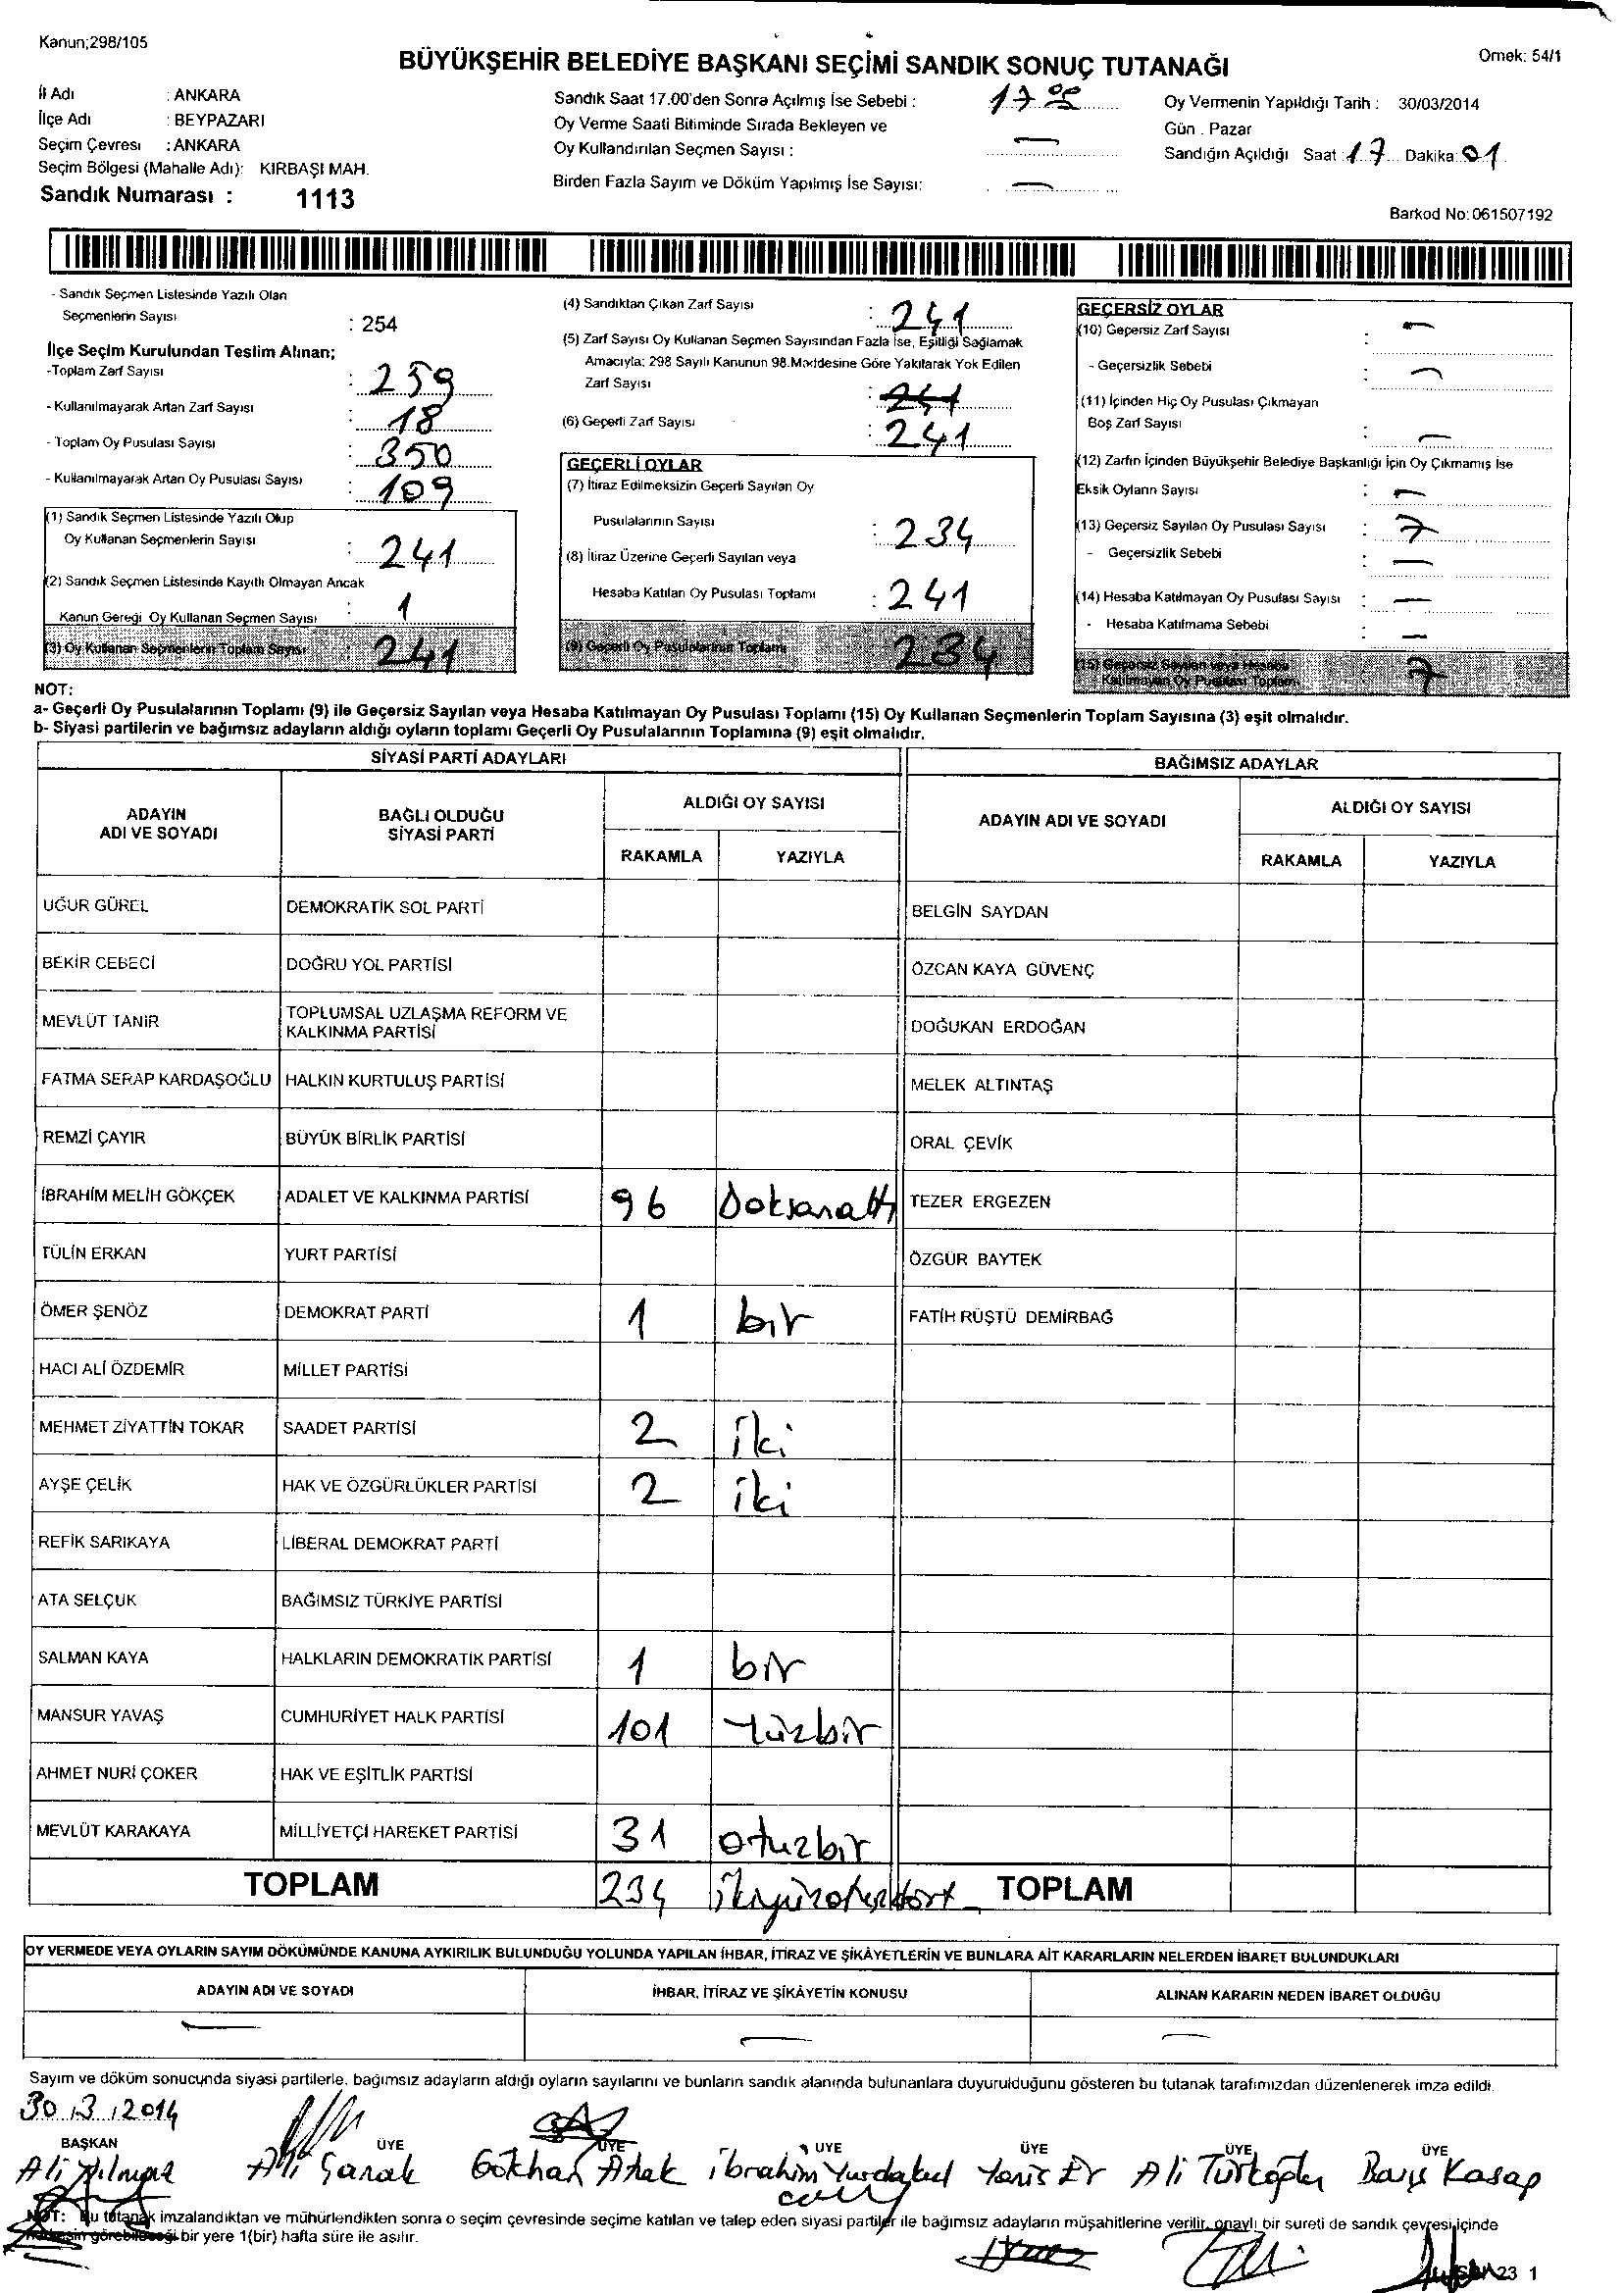 Kanun;298/105
Örnek: 54/1
BÜYÜKŞEHİR BELEDİYE BAŞKANI SEÇİMİ SANDIK SONUÇ TUTANAĞI
İl Adı : ANKARA
İlçe Adı : BEYPAZARI
Seçim Çevresi : ANKARA
Seçim Bölgesi (Mahalle Adı): KIRBAŞI MAH.
Sandık Numarası : 1113
Sandık Saat 17.00'den Sonra Açılmış İse Sebebi : 17 00
Oy Verme Saati Bitiminde Sırada Bekleyen ve
Oy Kullandırılan Seçmen Sayısı : —
Birden Fazla Sayım ve Döküm Yapılmış İse Sayısı: —
Oy Vermenin Yapıldığı Tarih : 30/03/2014
Gün . Pazar
Sandığın Açıldığı Saat 17 Dakika 01
Barkod No: 061507192
- Sandık Seçmen Listesinde Yazılı Olan
Seçmenlerin Sayısı : 254
İlçe Seçim Kurulundan Teslim Alınan;
-Toplam Zarf Sayısı : 259
- Kullanılmayarak Artan Zarf Sayısı : 18
- Toplam Oy Pusulası Sayısı : 350
- Kullanılmayarak Artan Oy Pusulası Sayısı : 109
(1) Sandık Seçmen Listesinde Yazılı Olup
Oy Kullanan Seçmenlerin Sayısı : 241
(2) Sandık Seçmen Listesinde Kayıtlı Olmayan Ancak
Kanun Gereği Oy Kullanan Seçmen Sayısı : 1
(3) Oy Kullanan Seçmenlerin Toplam Sayısı : 241
(4) Sandıktan Çıkan Zarf Sayısı : 241
(5) Zarf Sayısı Oy Kullanan Seçmen Sayısından Fazla İse, Eşitliği Sağlamak
Amacıyla; 298 Sayılı Kanunun 98.Maddesine Göre Yakılarak Yok Edilen
Zarf Sayısı : 241
(6) Geçerli Zarf Sayısı : 241
GEÇERLİ OYLAR
(7) İtiraz Edilmeksizin Geçerli Sayılan Oy
Pusulalarının Sayısı : 234
(8) İtiraz Üzerine Geçerli Sayılan veya
Hesaba Katılan Oy Pusulası Toplamı : 241
(9) Geçerli Oy Pusulalarının Toplamı 234
GEÇERSİZ OYLAR
(10) Geçersiz Zarf Sayısı : —
- Geçersizlik Sebebi : —
(11) İçinden Hiç Oy Pusulası Çıkmayan
Boş Zarf Sayısı : —
(12) Zarfın İçinden Büyükşehir Belediye Başkanlığı İçin Oy Çıkmamış İse
Eksik Oyların Sayısı : —
(13) Geçersiz Sayılan Oy Pusulası Sayısı : 7
- Geçersizlik Sebebi : —
(14) Hesaba Katılmayan Oy Pusulası Sayısı : —
- Hesaba Katılmama Sebebi : —
(15) Geçersiz Sayılan veya Hesaba
Katılmayan Oy Pusulası Toplamı 7
NOT:
a- Geçerli Oy Pusulalarının Toplamı (9) ile Geçersiz Sayılan veya Hesaba Katılmayan Oy Pusulası Toplamı (15) Oy Kullanan Seçmenlerin Toplam Sayısına (3) eşit olmalıdır.
b- Siyasi partilerin ve bağımsız adayların aldığı oyların toplamı Geçerli Oy Pusulalarının Toplamına (9) eşit olmalıdır.
SİYASİ PARTİ ADAYLARI
ADAYIN ADI VE SOYADI BAĞLI OLDUĞU SİYASİ PARTİ ALDIĞI OY SAYISI
RAKAMLA YAZIYLA
UĞUR GÜREL DEMOKRATİK SOL PARTİ
BEKİR CEBECİ DOĞRU YOL PARTİSİ
MEVLÜT TANİR TOPLUMSAL UZLAŞMA REFORM VE KALKINMA PARTİSİ
FATMA SERAP KARDAŞOĞLU HALKIN KURTULUŞ PARTİSİ
REMZİ ÇAYIR BÜYÜK BİRLİK PARTİSİ
İBRAHİM MELİH GÖKÇEK ADALET VE KALKINMA PARTİSİ 96 Doksanaltı
TÜLİN ERKAN YURT PARTİSİ
ÖMER ŞENÖZ DEMOKRAT PARTİ 1 bir
HACI ALİ ÖZDEMİR MİLLET PARTİSİ
MEHMET ZİYATTİN TOKAR SAADET PARTİSİ 2 iki
AYŞE ÇELİK HAK VE ÖZGÜRLÜKLER PARTİSİ 2 iki
REFİK SARIKAYA LİBERAL DEMOKRAT PARTİ
ATA SELÇUK BAĞIMSIZ TÜRKİYE PARTİSİ
SALMAN KAYA HALKLARIN DEMOKRATİK PARTİSİ 1 bir
MANSUR YAVAŞ CUMHURİYET HALK PARTİSİ 101 Yüzbir
AHMET NURİ ÇOKER HAK VE EŞİTLİK PARTİSİ
MEVLÜT KARAKAYA MİLLİYETÇİ HAREKET PARTİSİ 31 otuzbir
TOPLAM 234 ikiyüzotuzdört
BAĞIMSIZ ADAYLAR
ADAYIN ADI VE SOYADI ALDIĞI OY SAYISI
RAKAMLA YAZIYLA
BELGİN SAYDAN
ÖZCAN KAYA GÜVENÇ
DOĞUKAN ERDOĞAN
MELEK ALTINTAŞ
ORAL ÇEVİK
TEZER ERGEZEN
ÖZGÜR BAYTEK
FATİH RÜŞTÜ DEMİRBAĞ
TOPLAM
OY VERMEDE VEYA OYLARIN SAYIM DÖKÜMÜNDE KANUNA AYKIRILIK BULUNDUĞU YOLUNDA YAPILAN İHBAR, İTİRAZ VE ŞİKÂYETLERİN VE BUNLARA AİT KARARLARIN NELERDEN İBARET BULUNDUKLARI
ADAYIN ADI VE SOYADI İHBAR, İTİRAZ VE ŞİKÂYETİN KONUSU ALINAN KARARIN NEDEN İBARET OLDUĞU
— — —
Sayım ve döküm sonucunda siyasi partilerle, bağımsız adayların aldığı oyların sayılarını ve bunların sandık alanında bulunanlara duyurulduğunu gösteren bu tutanak tarafımızdan düzenlenerek imza edildi.
30.3.2014
BAŞKAN ÜYE ÜYE ÜYE ÜYE ÜYE ÜYE
Ali Yılmaz Ali Gökhan ibrahim Yurdakul Er Ali Türkoğlu Barış Kasap
NOT: Bu tutanak imzalandıktan ve mühürlendikten sonra o seçim çevresinde seçime katılan ve talep eden siyasi partiler ile bağımsız adayların müşahitlerine verilir, onaylı bir sureti de sandık çevresi içinde
herkesin görebileceği bir yere 1(bir) hafta süre ile asılır.
23 1